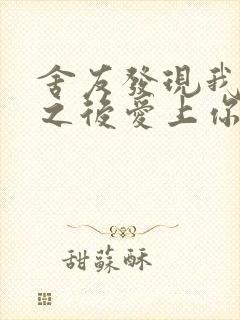 舍友發現我
之後愛上你
甜蘇酥